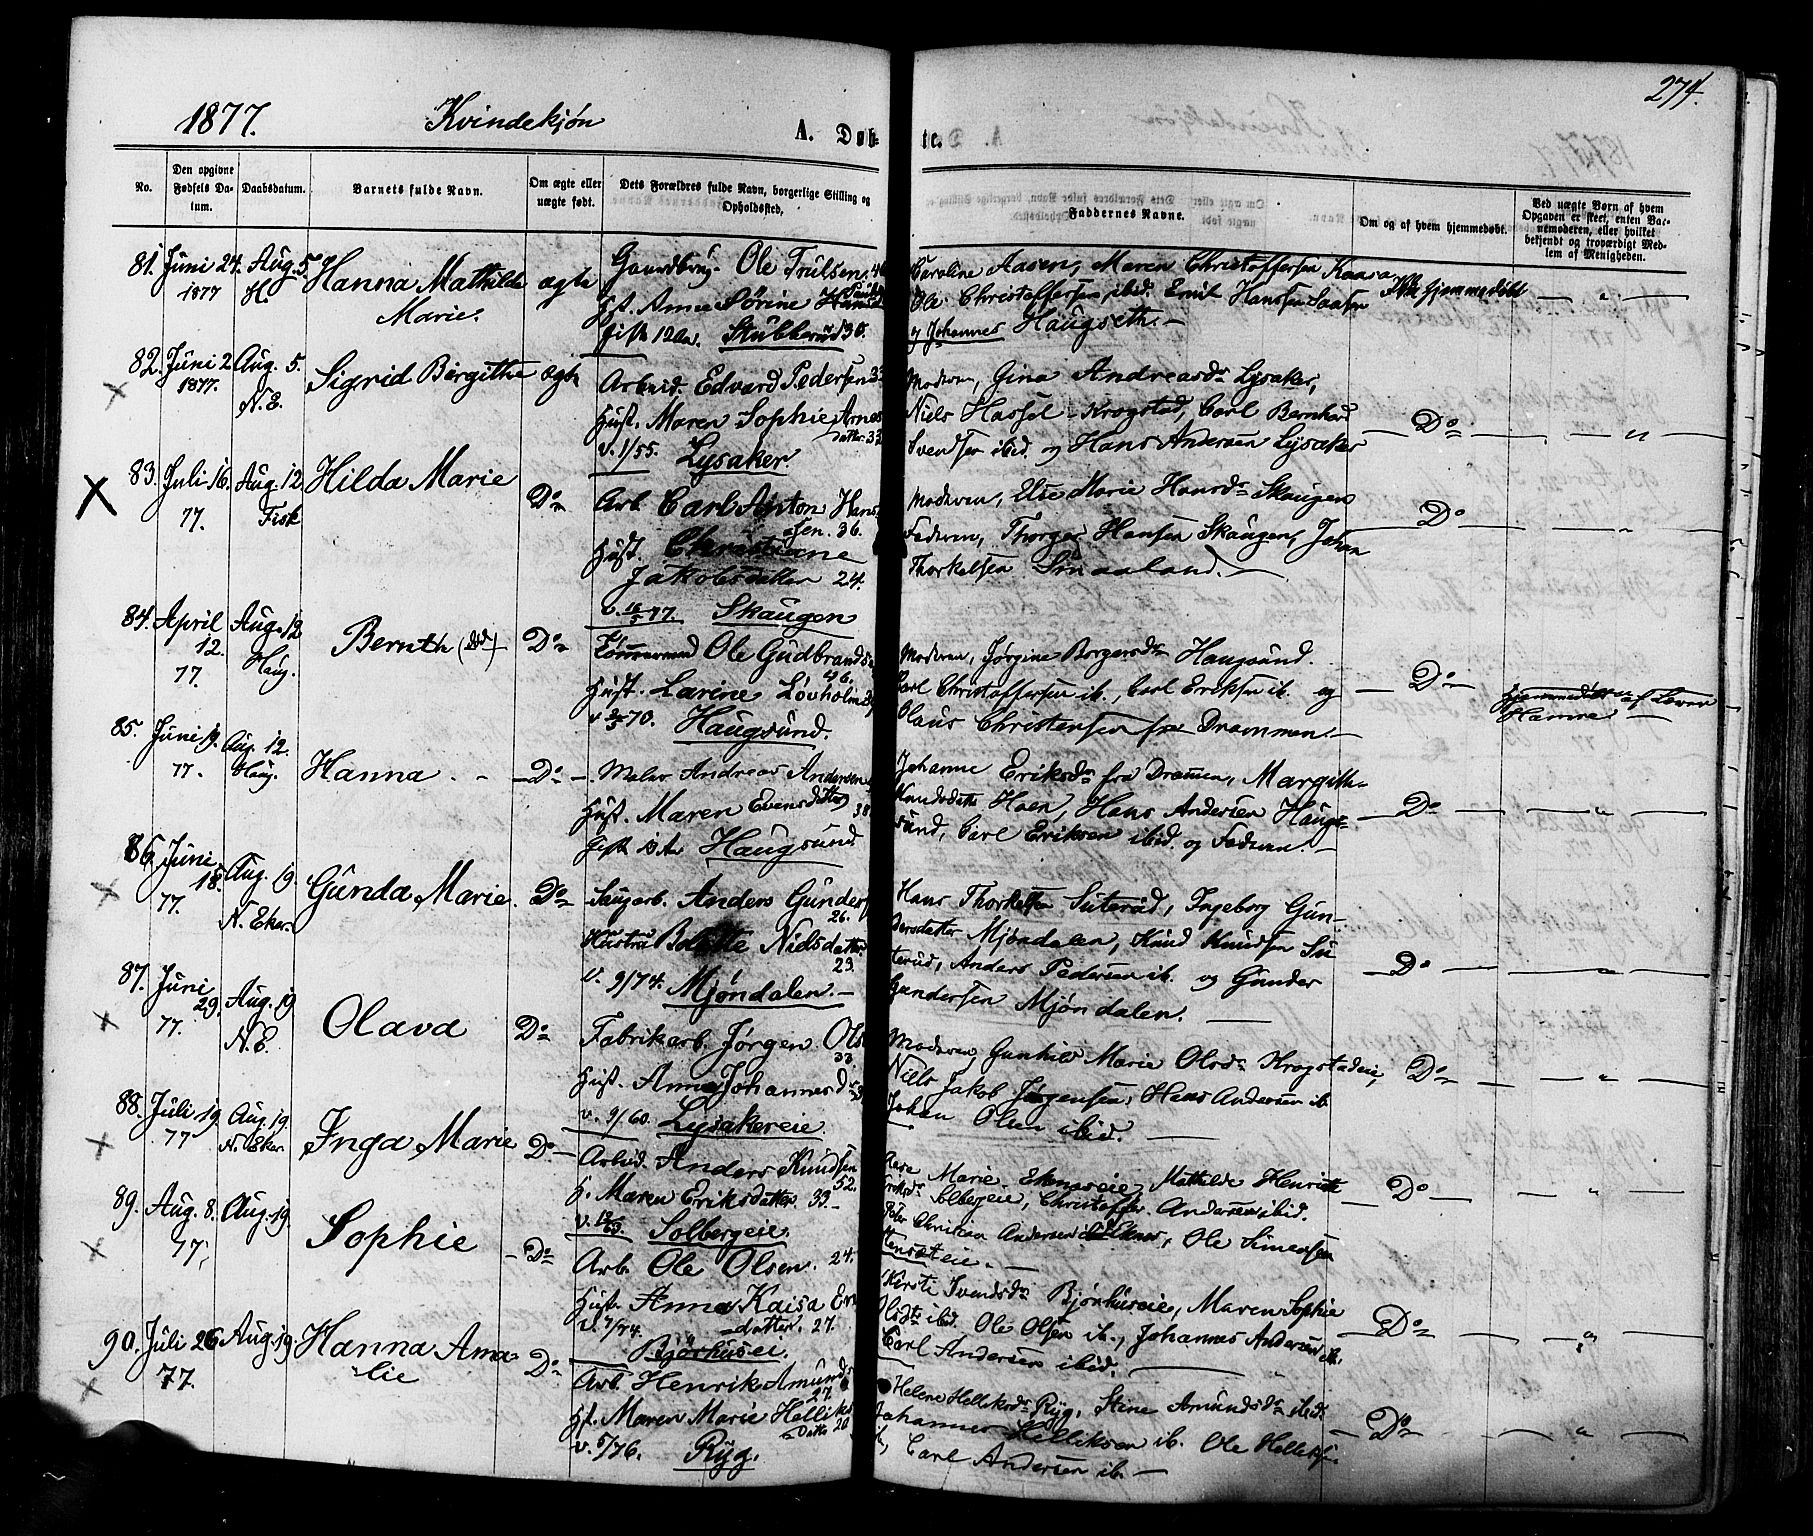 274.
1877. Kvindekjøn
A. Døb- te.
No.
Den opgivne Fødsels Da- tum.
Daabsdatum.
Barnets fulde Navn.
Om ægte eller uægte født.
Dets Forældres fulde Navn, borgerlige Stilling og Opholdssted.
Faddernes Navne.
Om og af hvem hjemmedøbt.
Ved uægte Børn af hvem Opgaven er skeet, enten Bar- nemoderen, eller hvilket bekjendt og troværdigt Med- lem af Menigheden.
81. Juni 24. 1877
Aug. 5. H
Hanna Mathilde
Marie.
ægte
Gaardbrug. Ole Trulsen
Hst. Anna Sørine
Gift 12 Aar. Stubberud 30.
Caroline Aasen, Maren Christoffersen Kaasa
Ole Christoffersen ibid. Emil Hansen Saasen
og Johannes Haugseth.-
Ikke hjemmedøbt
82. Juni 2 1877.
Aug. 5. N.E.
Sigrid Birgitha
ægte
Arbeid. Edvard Pedersen 33
Hust. Maren Sophie Arnes
datter. 33
v. 1/55. Lysaker.
Moderen, Gina Andreasdr Lysaker,
Niels Hassel-Krogstad, Carl Bernhard
Svendsen ibid. og Hans Andersen Lysaker
Do
83. Juli 16. 77.
Aug. 12 Fisk
Hilda Marie
Do
Arb. Carl Anton Hans
sen. 36.
Hust. Christiane
Jakobsdatter 24.
v. 77. Skaugen
Moderen, Else Marie Hansdr Skaugen
Faderen, Thorger Hansen Skaugen, Johan
Thorkelsen Smaaland.
Do
84. April 12. 77.
Aug. 12 Haug.
Bernth (død)
Do
Tømmermand Ole Gudbrands
46.
Hust. Larine Løvholm
v 70. Haugsund.
Moderen, Jørgine Borgersdr Haugsund.
Carl Christoffersen ib. Carl Eriksen ib. og
Olaus Christensen fra Drammen.
Do
Hjemmedøbt af
Hamre
85. Juni 19. 77.
Aug. 12. Haug.
Hanna
Do
Maler Andreas Andersen
Hust. Maren Evensdatter
38.
Gift 13 Ar Haugsund
Johanne Eriksdr fra Drammen, Margith
Knudsdatter Hoen, Hans Andersen Haug-
sund, Carl Eriksen ibid. og Faderen.-
Do
86. Juni 18. 77.
Aug. 19. N. Eker.
Gunda Marie.
Do
Saugarb. Anders Gunders
26.
Hustru Bolette Nielsdatter
23.
v. 9/74. Mjøndalen.-
Hans Thorkelsen Suterud, Ingeborg Gun-
dersdatter Mjøndalen, Knud Knudsen Su
terud, Anders Pedersen ib. og Gunder
Gundersen Mjøndalen.
Do
87. Juni 29. 77.
Aug. 19 N.E.
Olava
Do
Fabrikarb. Jørgen Ols
33
Hust. Anna Johannesd
v. 9/60. Lysakereie.
Moderen, Gunhild Marie Olsdr Krogstadeie,
Niels Jakob Jørgensen, Hans Andersen ib
Johan Olsen ibid.
Do
88. Juli 19 77
Aug. 19. N. Eker
Inga Marie
Do
Arbeid. Anders Knudsen
52.
H. Maren Eriksdatter. 33.-
v. Solbergeie.
Aase Marie Ekeneseie, Mathilde Henriette
Eriksdr Solbergeie, Christoffer Andersen ibid.
Peter Christian Andersen Eknes, Ole Simensen
Do
89. Aug. 8. 77.
Aug. 19.
Sophie
Do
Arb. Ole Olsen. 24.
Hust. Anna Kaisa
datter. 27.
v. 7/74.
Bjørhusei.
Kirsti Svendsdr Bjørhuseie, Maren Sophie
Olsdtr ibid. Ole Olsen ib., Johannes Andersen ib.
Carl Andersen ibid.
Do
90. Juli 26 77.
Aug. 19
Hanna Ama-
lie
Do
Arb. Henrik Amunds
27.
H. Maren Marie Helliks
datter 20
v. 5/76. Ryg.
Helene Helliksdr Ryg, Stine Amundsdr ibid.
Johannes Helliksen ib. Ole Helliksen
ib, Carl Andersen ib.-
Do